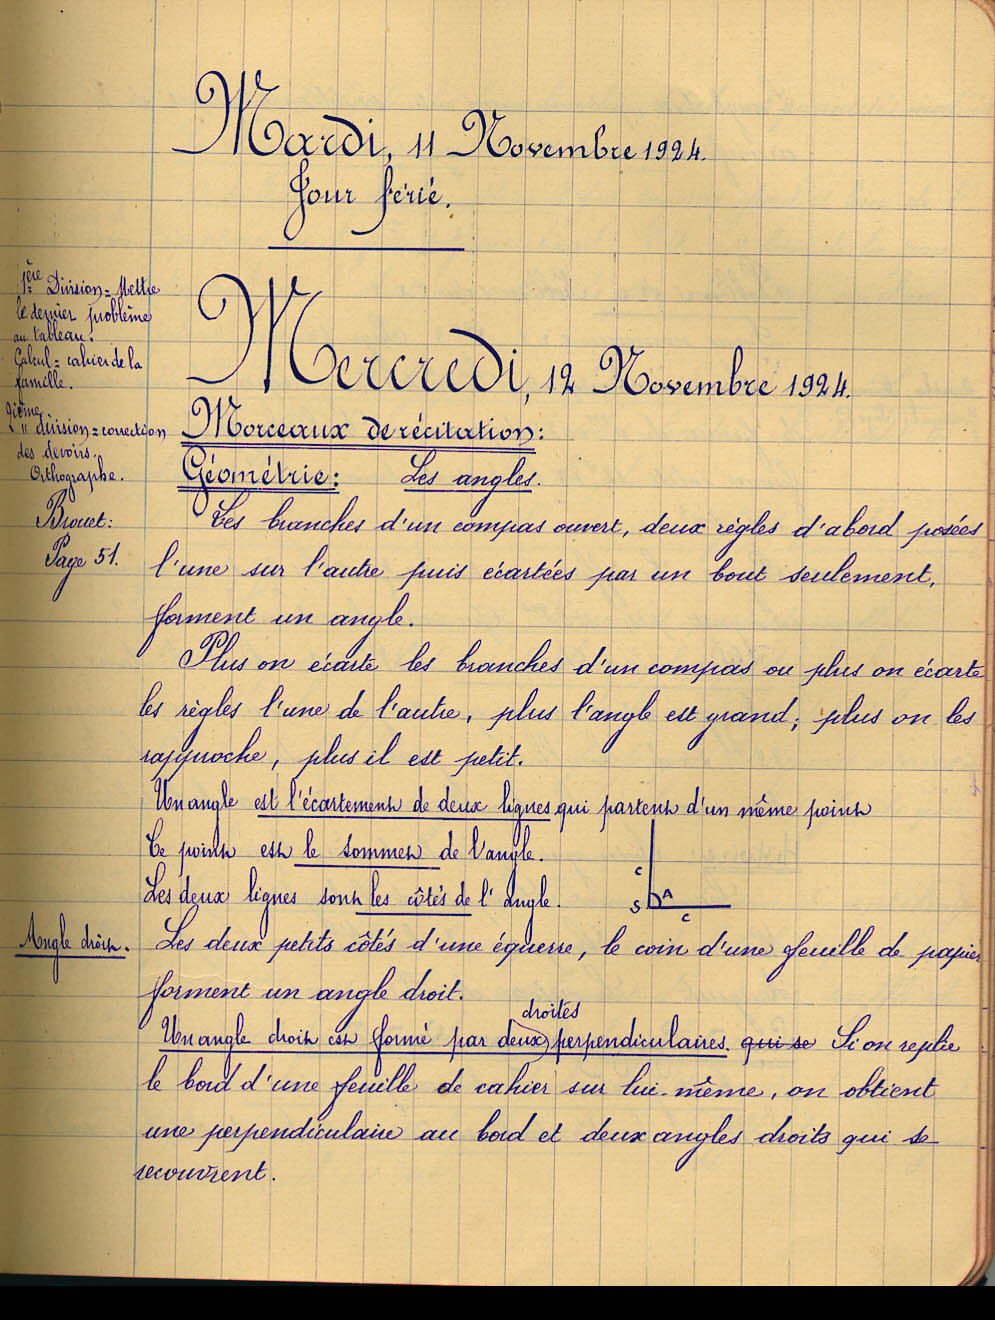 Mardi, 11 Novembre 1924.
Jour férié.
1ère Division = Mettre
le dernier problème
au tableau.
Calcul = cahier de la
famille.
2ième division = correction
des devoirs.
Orthographe.
Brouet:
Page 51.
Mercredi, 12 Novembre 1924.
Morceaux de récitation:
Géométrie: Les angles.
Les branches d'un compas ouvert, deux règles d'abord posées
l'une sur l'autre puis écartées par un bout seulement,
forment un angle.
Plus on écarte les branches d'un compas ou plus on écarte
les règles l'une de l'autre, plus l'angle est grand; plus on les
rapproche, plus il est petit.
Un angle est l'écartement de deux lignes qui partent d'un même point
Ce point est le sommet de l'angle.
Les deux lignes sont les côtés de l'angle.
C
S A
C
Angle droit.
Les deux petits côtés d'une équerre, le coin d'une feuille de papier
forment un angle droit.
droites
Un angle droit est formé par deux perpendiculaires. qui se Si on replie
le bord d'une feuille de cahier sur lui-même, on obtient
une perpendiculaire au bord et deux angles droits qui se
recouvrent.